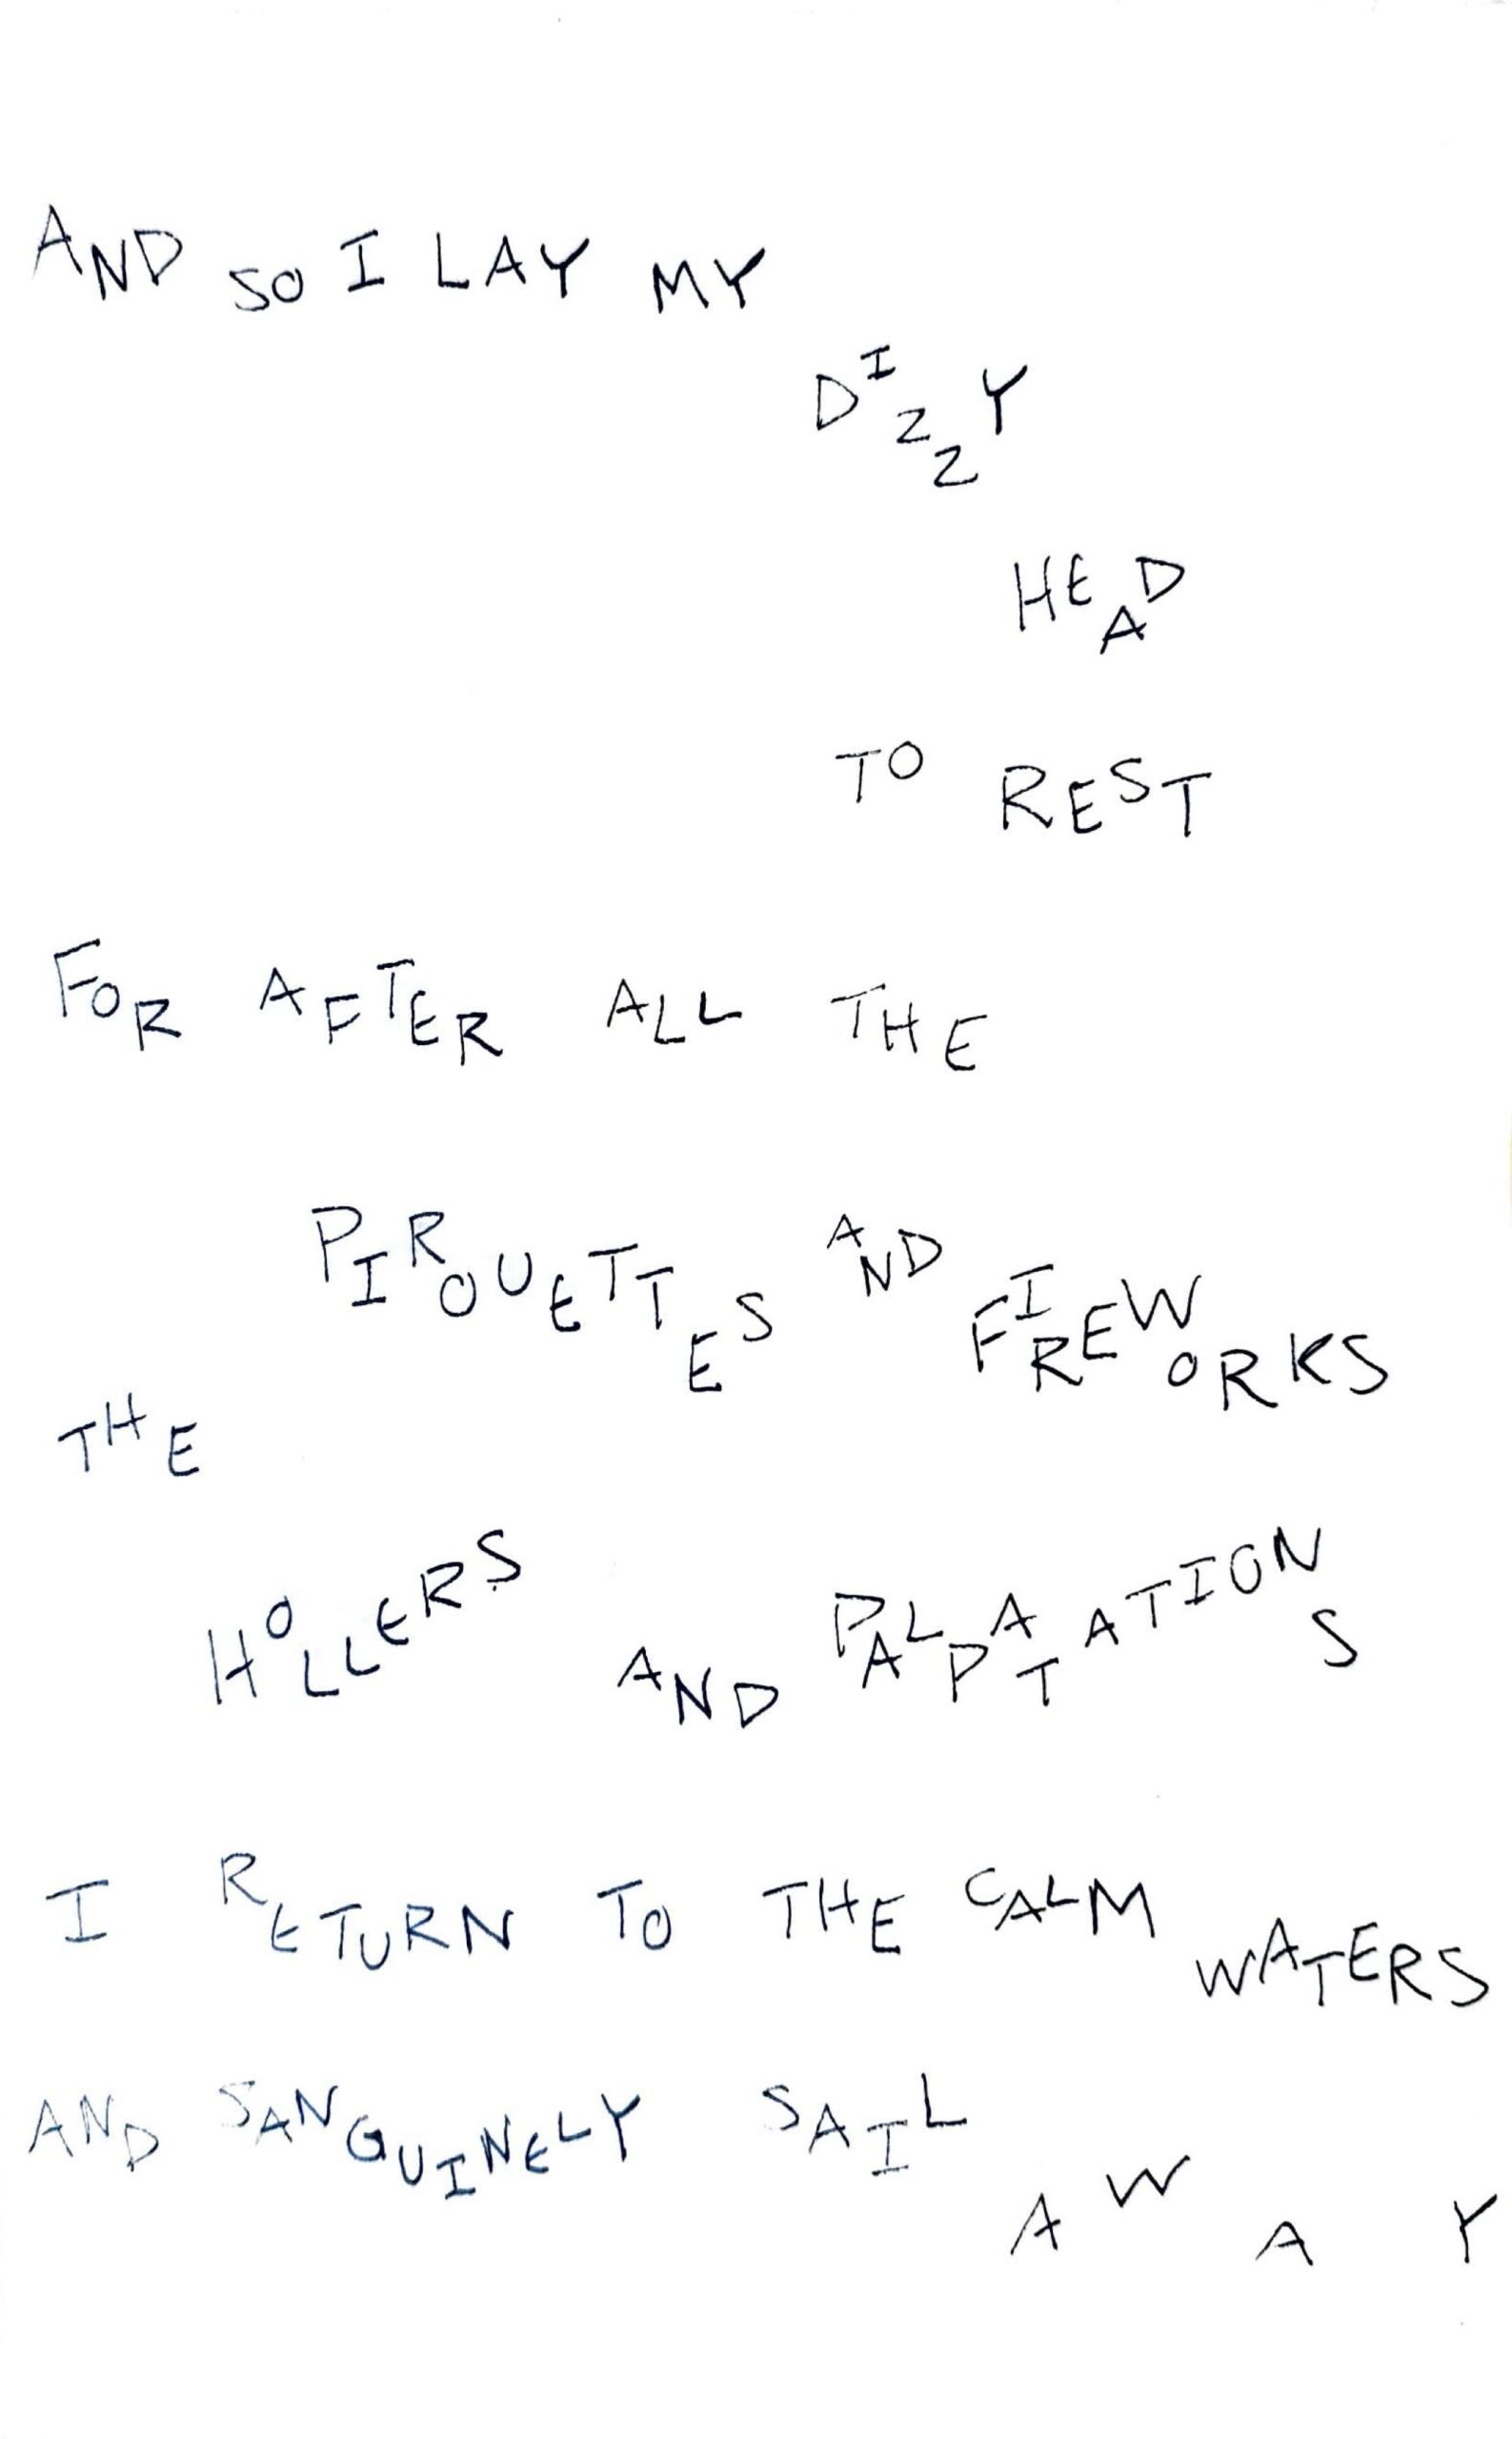 AND SO I LAY MY
DIZZY
HEAD
TO REST
FOR AFTER ALL THE
PIROUETTES AND FIREWORKS
THE
HOLLERS AND PALPATATIONS
I RETURN TO THE CALM WATERS
AND SANGUINELY SAIL
AWAY